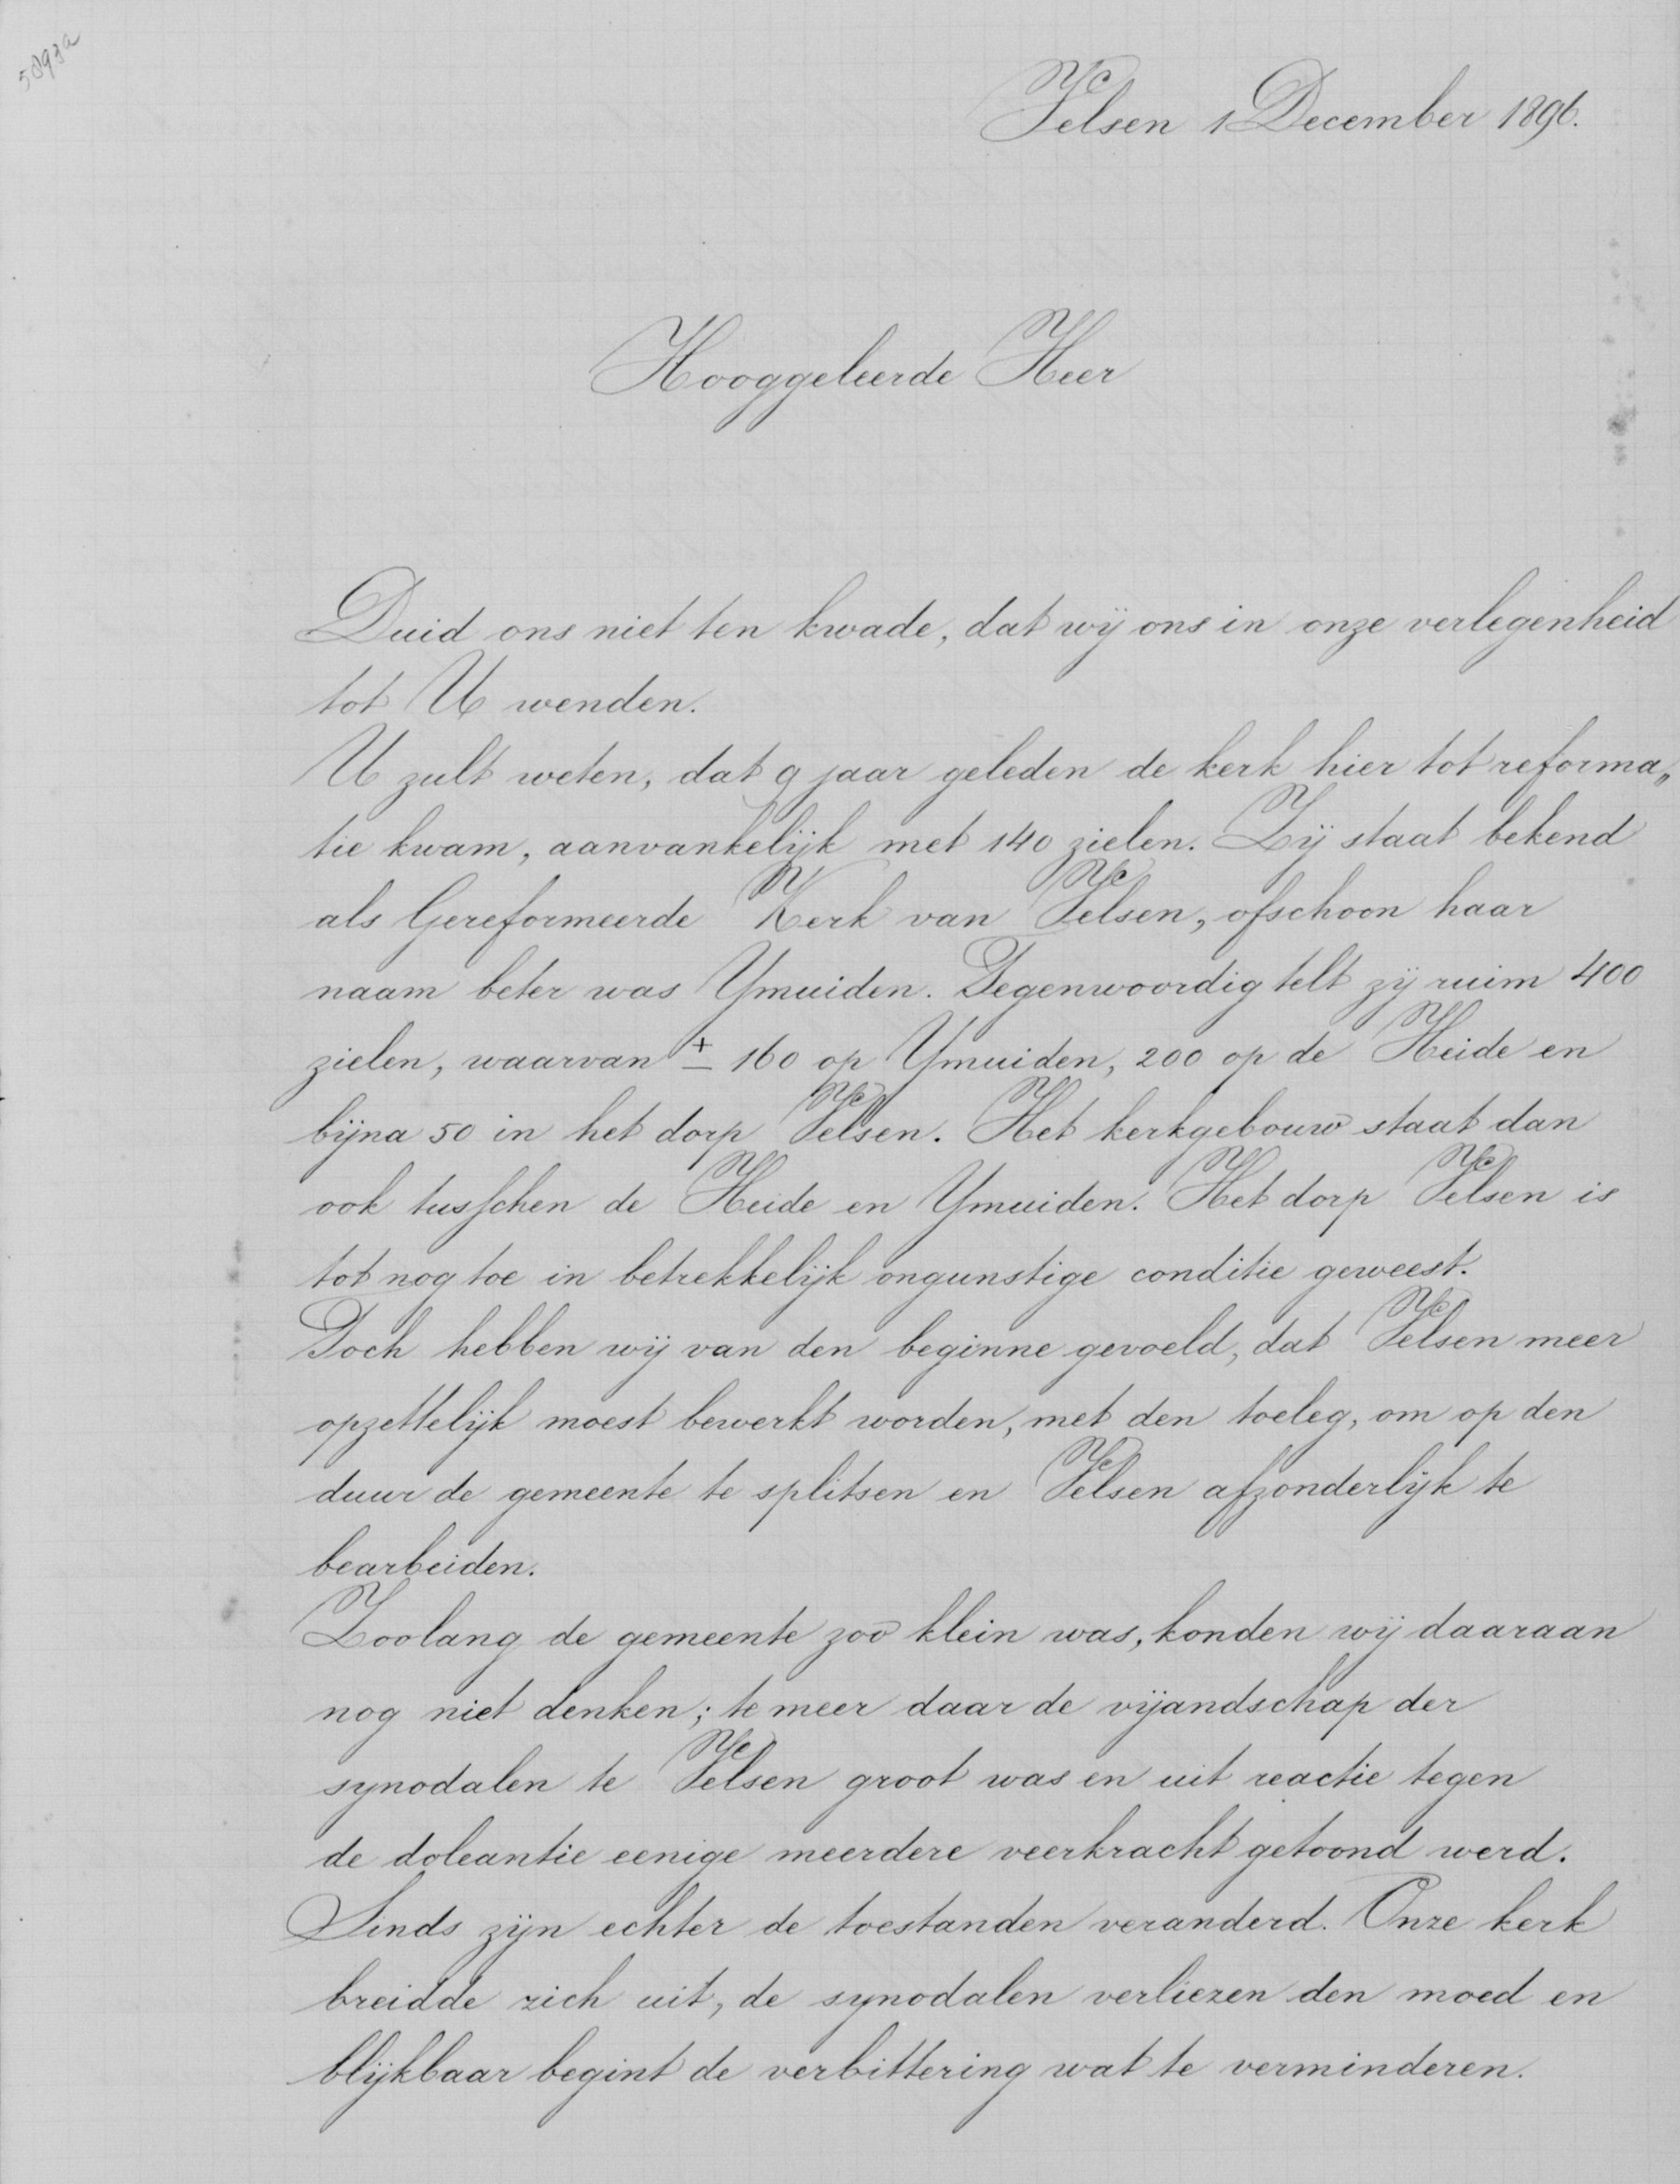 5893a
Velsen 1 December 1896.
Hooggeleerde Heer
Duid ons niet ten kwade, dat wij ons in onze verlegenheid
tot U wenden.
U zult weten, dat 9 jaar geleden de kerk hier tot reforma„
tie kwam, aanvankelijk met 140 zielen. Zij staat bekend
als Gereformeerde Kerk van Velsen, ofschoon haar
naam beter was Ymuiden. Tegenwoordig telt zij ruim 400
zielen, waarvan ± 160 op Ymuiden, 200 op de Heide en
bijna 50 in het dorp Velsen. Het kerkgebouw staat dan
ook tusschen de Heide en Ymuiden. Het dorp Velsen is
tot nog toe in betrekkelijk ongunstige conditie geweest.
Toch hebben wij van den beginne gevoeld, dat Velsen meer
opzettelijk moest bewerkt worden, met den toeleg, om op den
duur de gemeente te splitsen en Velsen afzonderlijk te
bearbeiden.
Zoolang de gemeente zoo klein was, konden wij daaraan
nog niet denken; te meer daar de vijandschap der
synodalen te Velsen groot was en uit reactie tegen
de doleantie eenige meerdere veerkracht getoond werd.
Sinds zijn echter de toestanden veranderd. Onze kerk
breidde zich uit, de synodalen verliezen den moed en
blijkbaar begint de verbittering wat te verminderen.